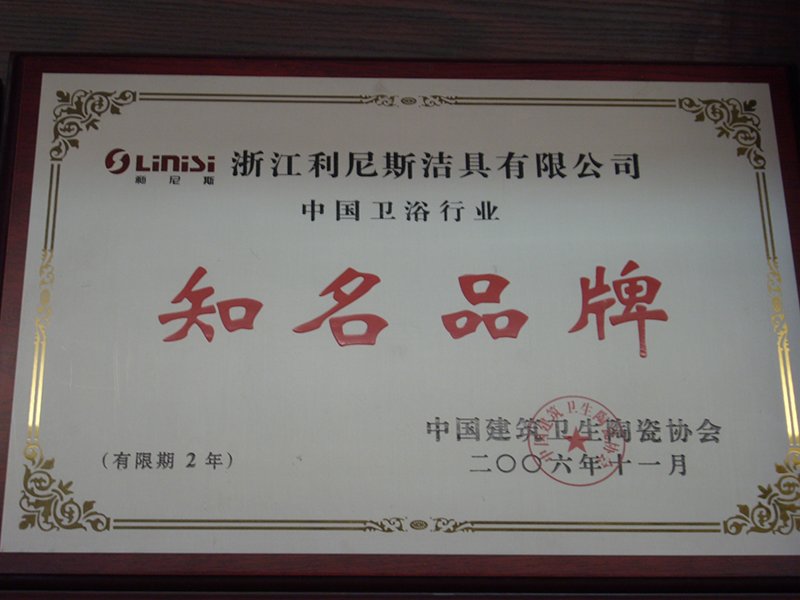 LiNiSi 浙江利尼斯洁具有限公司
利尼斯
中国卫浴行业
知名品牌
中国建筑卫生陶瓷协会
(有限期2年)
二〇〇六年十一月
中国建筑卫生陶瓷协会